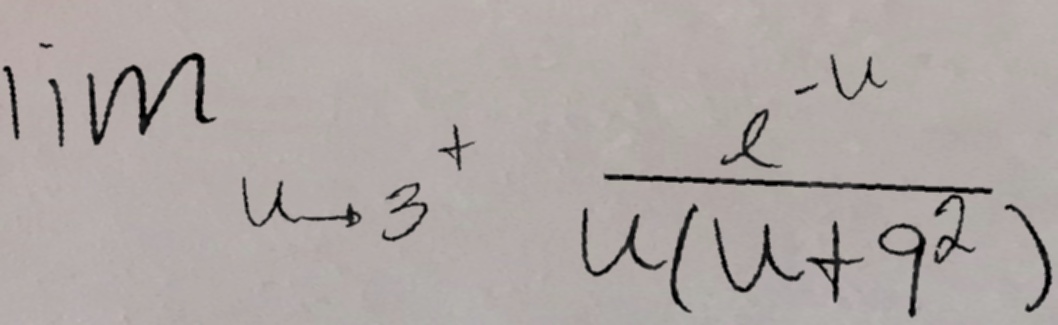 lim_{u→3^+} \frac{e^{-u}}{u(u+9^2)}